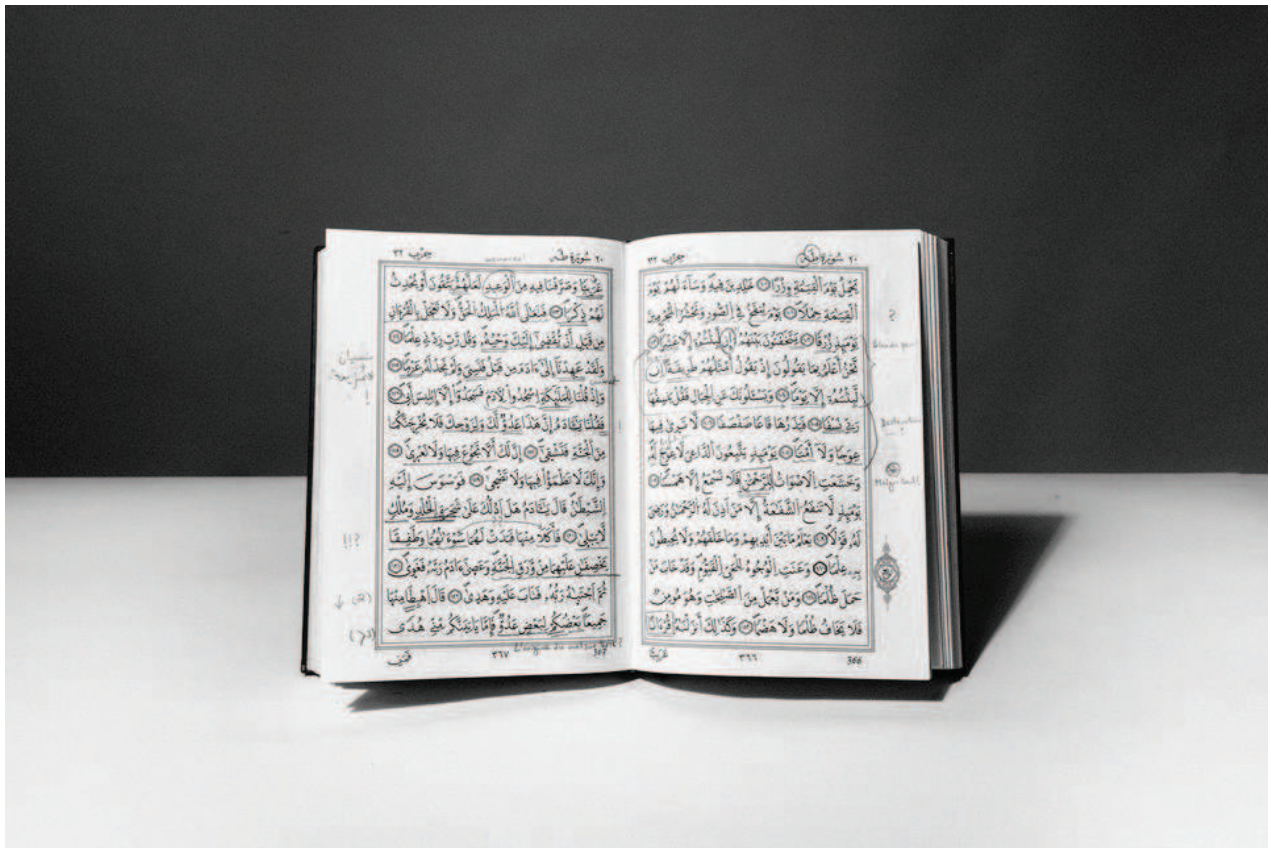 ٢٠ سُورَةُ طَهَ حِزْب ٣٢
يَحْمِلُ يَوْمَ اَلْقِيَٰمَةِ وِزْرًا خَٰلِدِينَ فِيهِ وَسَآءَ لَهُمْ يَوْمَ
اَلْقِيَٰمَةِ حِمْلًا يَوْمَ يُنفَخُ فِے اِلصُّورِ وَنَحْشُرُ اُلْمُجْرِمِينَ
يَوْمَئِذٍ زُرْقًا يَتَخَٰفَتُونَ بَيْنَهُمْ إِن لَّبِثْتُمْ إِلَّا عَشْرًا
نَّحْنُ أَعْلَمُ بِمَا يَقُولُونَ إِذْ يَقُولُ أَمْثَلُهُمْ طَرِيقَةً إِن
لَّبِثْتُمْ إِلَّا يَوْمًا وَيَسْـَٔلُونَكَ عَنِ اِلْجِبَالِ فَقُلْ يَنسِفُهَا
رَبِّے نَسْفًا فَيَذَرُهَا قَاعًا صَفْصَفًا لَّا تَرَىٰ فِيهَا
عِوَجًا وَلَآ أَمْتًا يَوْمَئِذٍ يَتَّبِعُونَ اَلدَّاعِيَ لَا عِوَجَ لَهُ
وَخَشَعَتِ اِلْأَصْوَاتُ لِلرَّحْمَٰنِ فَلَا تَسْمَعُ إِلَّا هَمْسًا
يَوْمَئِذٍ لَّا تَنفَعُ اُلشَّفَٰعَةُ إِلَّا مَنْ أَذِنَ لَهُ اُلرَّحْمَٰنُ وَرَضِيَ
لَهُ قَوْلًا يَعْلَمُ مَا بَيْنَ أَيْدِيهِمْ وَمَا خَلْفَهُمْ وَلَا يُحِيطُونَ
بِهِ عِلْمًا وَعَنَتِ اِلْوُجُوهُ لِلْحَيِّ اِلْقَيُّومِ وَقَدْ خَابَ مَنْ
حَمَلَ ظُلْمًا وَمَنْ يَّعْمَلْ مِنَ اَلصَّٰلِحَٰتِ وَهُوَ مُومِنٌ
فَلَا يَخَافُ ظُلْمًا وَلَا هَضْمًا وَكَذَٰلِكَ أَنزَلْنَٰهُ قُرْءَانًا
عَرَبِيًّا ٣٦٦ 366
?
Destruction
Malgré tout!
٢٠ سُورَةُ طَهَ حِزْب ٣٢
عَرَبِيًّا وَصَرَّفْنَا فِيهِ مِنَ اَلْوَعِيدِ لَعَلَّهُمْ يَتَّقُونَ أَوْ يُحْدِثُ
لَهُمْ ذِكْرًا فَتَعَٰلَى اَللَّهُ اُلْمَلِكُ اُلْحَقُّ وَلَا تَعْجَلْ بِالْقُرْءَانِ
مِن قَبْلِ أَنْ يُّقْضَىٰٓ إِلَيْكَ وَحْيُهُ وَقُل رَّبِّ زِدْنِے عِلْمًا
وَلَقَدْ عَهِدْنَآ إِلَىٰٓ ءَادَمَ مِن قَبْلُ فَنَسِيَ وَلَمْ نَجِدْ لَهُ عَزْمًا
وَإِذْ قُلْنَا لِلْمَلَٰٓئِكَةِ اِسْجُدُوا لِأَدَمَ فَسَجَدُوٓا إِلَّآ إِبْلِيسَ أَبَىٰ
فَقُلْنَا يَٰٓـَٔادَمُ إِنَّ هَٰذَا عَدُوٌّ لَّكَ وَلِزَوْجِكَ فَلَا يُخْرِجَنَّكُمَا
مِنَ اَلْجَنَّةِ فَتَشْقَىٰٓ إِنَّ لَكَ أَلَّا تَجُوعَ فِيهَا وَلَا تَعْرَىٰ
وَإِنَّكَ لَا تَظْمَؤُا فِيهَا وَلَا تَضْحَىٰ فَوَسْوَسَ إِلَيْهِ
اِلشَّيْطَٰنُ قَالَ يَٰٓـَٔادَمُ هَلْ أَدُلُّكَ عَلَىٰ شَجَرَةِ اِلْخُلْدِ وَمُلْكٍ
لَّا يَبْلَىٰ فَأَكَلَا مِنْهَا فَبَدَتْ لَهُمَا سَوْءَٰتُهُمَا وَطَفِقَا
يَخْصِفَٰنِ عَلَيْهِمَا مِنْ وَّرَقِ اِلْجَنَّةِ وَعَصَىٰٓ ءَادَمُ رَبَّهُ فَغَوَىٰ
ثُمَّ اَجْتَبَٰهُ رَبُّهُ فَتَابَ عَلَيْهِ وَهَدَىٰ قَالَ اَهْبِطَا مِنْهَا
جَمِيعًا بَعْضُكُمْ لِبَعْضٍ عَدُوٌّ فَإِمَّا يَاتِيَنَّكُم مِّنِّے هُدًى
فَمَنِ ٣٦٧ 367
نسيان
?!!